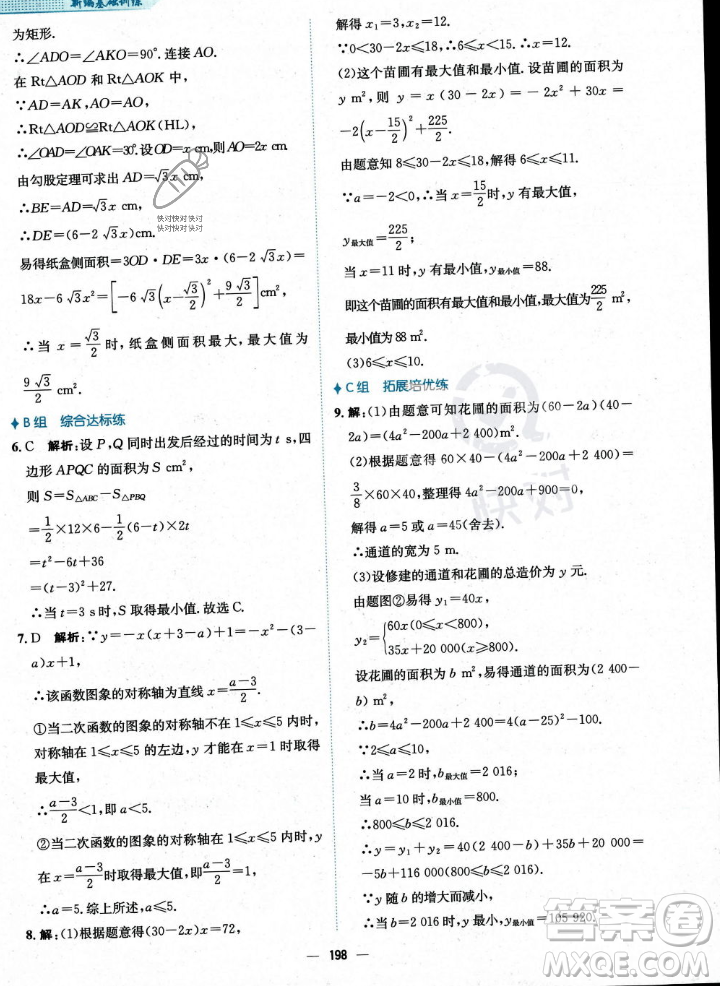 新编基础训练
为矩形.
∴∠ADO=∠AKO=90°.连接AO.
在Rt△AOD和Rt△AOK中,
∵AD=AK,AO=AO,
∴Rt△AOD≌Rt△AOK(HL),
∴∠OAD=∠OAK=30°.设OD=x,则AO=2x cm.
由勾股定理可求出AD=√3x cm,
∴BE=AD=√3x cm,
∴DE=(6-2√3x)cm,
易得纸盒侧面积=3OD·DE=3x·(6-2√3x)=
18x-6√3x²=[-6√3(x-√3/2)²+9√3/2]cm²,
∴当x=√3/2时,纸盒侧面积最大,最大值为
9√3/2 cm².
B组 综合达标练
6.C 解析:设P,Q同时出发后经过的时间为t s,四
边形APQC的面积为S cm²,
则S=S△ABC-S△PBQ
=1/2×12×6-1/2(6-t)×2t
=t²-6t+36
=(t-3)²+27.
∴当t=3 s时,S取得最小值.故选C.
7.D 解析:∵y=-x(x+3-a)+1=-x²-(3-
a)x+1,
∴该函数图象的对称轴为直线x=(a-3)/2.
①当二次函数的图象的对称轴不在1≤x≤5内时,
对称轴在1≤x≤5的左边,y才能在x=1时取得
最大值,
∴(a-3)/2<1,即a<5.
②当二次函数的图象的对称轴在1≤x≤5内时,y
在x=(a-3)/2时取得最大值,即(a-3)/2=1,
∴a=5.综上所述,a≤5.
8.解:(1)根据题意得(30-2x)x=72,
解得x₁=3,x₂=12.
∵0<30-2x≤18,∴6≤x<15,∴x=12.
(2)这个苗圃有最大值和最小值.设苗圃的面积为
y m²,则y=x(30-2x)=-2x²+30x=
-2(x-15/2)²+225/2.
由题意知8≤30-2x≤18,解得6≤x≤11.
∵a=-2<0,∴当x=15/2时,y有最大值,
y最大值=225/2;
当x=11时,y有最小值,y最小值=88.
即这个苗圃的面积有最大值和最小值,最大值为225/2 m²,
最小值为88 m².
(3)6≤x≤10.
C组 拓展培优练
9.解:(1)由题意可知花圃的面积为(60-2a)(40-
2a)=(4a²-200a+2 400)m².
(2)根据题意得60×40-(4a²-200a+2 400)=
3/8×60×40,整理得4a²-200a+900=0,
解得a=5或a=45(舍去).
∴通道的宽为5 m.
(3)设修建的通道和花圃的总造价为y元.
由题图②易得y₁=40x,
y₂={60x(0≤x≤800),
35x+20 000(x>800).
设花圃的面积为b m²,易得花圃的面积为(4a²-200a+2 400)
m²,
∴b=4a²-200a+2 400=4(a-25)²-100.
∵2≤a≤10,
∴当a=2时,b最大值=2 016;
当a=10时,b最小值=800.
∴800≤b≤2 016.
∴y=y₁+y₂=40(2 400-b)+35b+20 000
=-5b+116 000(800≤b≤2 016).
∵y随b的增大而减小,
∴当b=2 016时,y最小,最小值=105 920.
198
快对快对快对
快对快对快对
快对
答案圈